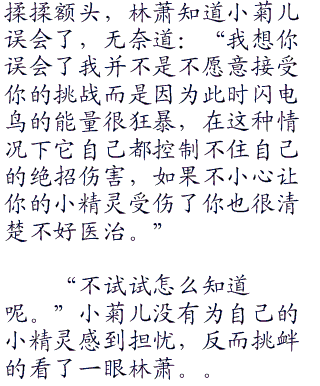 揉揉额头，林萧知道小菊儿
误会了，无奈道：“我想你
误会了我并不是不愿意接受
你的挑战而是因为此时闪电
鸟的能量很狂暴，在这种情
况下它自己都控制不住自己
的绝招伤害，如果不小心让
你的小精灵受伤了你也很清
楚不好医治。”
“不试试怎么知道
呢。”小菊儿没有为自己的
小精灵感到担忧，反而挑衅
的看了一眼林萧。。